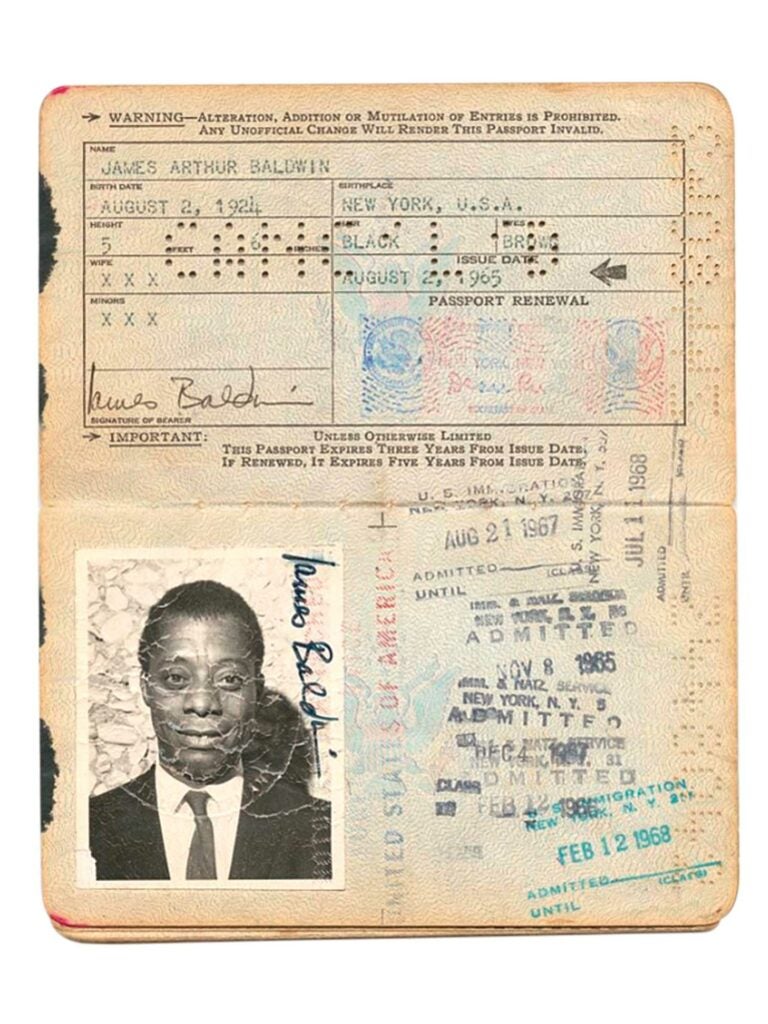 WARNING—ALTERATION, ADDITION OR MUTILATION OF ENTRIES IS PROHIBITED.
ANY UNOFFICIAL CHANGE WILL RENDER THIS PASSPORT INVALID.
NAME
JAMES ARTHUR BALDWIN
BIRTH DATE
AUGUST 2, 1924
BIRTHPLACE
NEW YORK, U.S.A.
HEIGHT
5 FEET 6 INCHES
HAIR
BLACK
EYES
BROWN
WIFE
X X X
ISSUE DATE
AUGUST 2, 1965
MINORS
X X X
PASSPORT RENEWAL
James Baldwin
SIGNATURE OF BEARER
IMPORTANT: UNLESS OTHERWISE LIMITED
THIS PASSPORT EXPIRES THREE YEARS FROM ISSUE DATE.
IF RENEWED, IT EXPIRES FIVE YEARS FROM ISSUE DATE.
James Baldwin
UNITED STATES OF AMERICA
U. S. IMMIGRATION
NEW YORK, N. Y.
AUG 21 1967
ADMITTED (CLASS)
UNTIL
U. S. IMMIGRATION
NEW YORK, N. Y.
JUL 11 1968
ADMITTED
UNTIL
NEW YORK, N. Y.
ADMITTED
NOV 8 1965
IMM. & NATZ. SERVICE
NEW YORK, N. Y.
ADMITTED
DEC 4 1967
NATZ SERVICE
NEW YORK, N. Y. 31
ADMITTED
CLASS
FEB 12
U. S. IMMIGRATION
NEW YORK, N. Y.
FEB 12 1968
ADMITTED (CLASS)
UNTIL